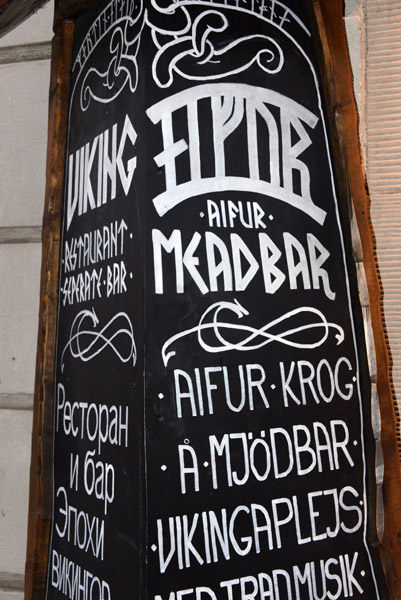 VIKING
·RESTAURANT·
·SEPERATE·BAR·
Ресторан
и бар
Эпохи
викингов
·AIFUR·
MEADBAR
·AIFUR·KROG·
·Å·MJÖDBAR·
·VIKINGAPLEJS·
MED TRAD MUSIK